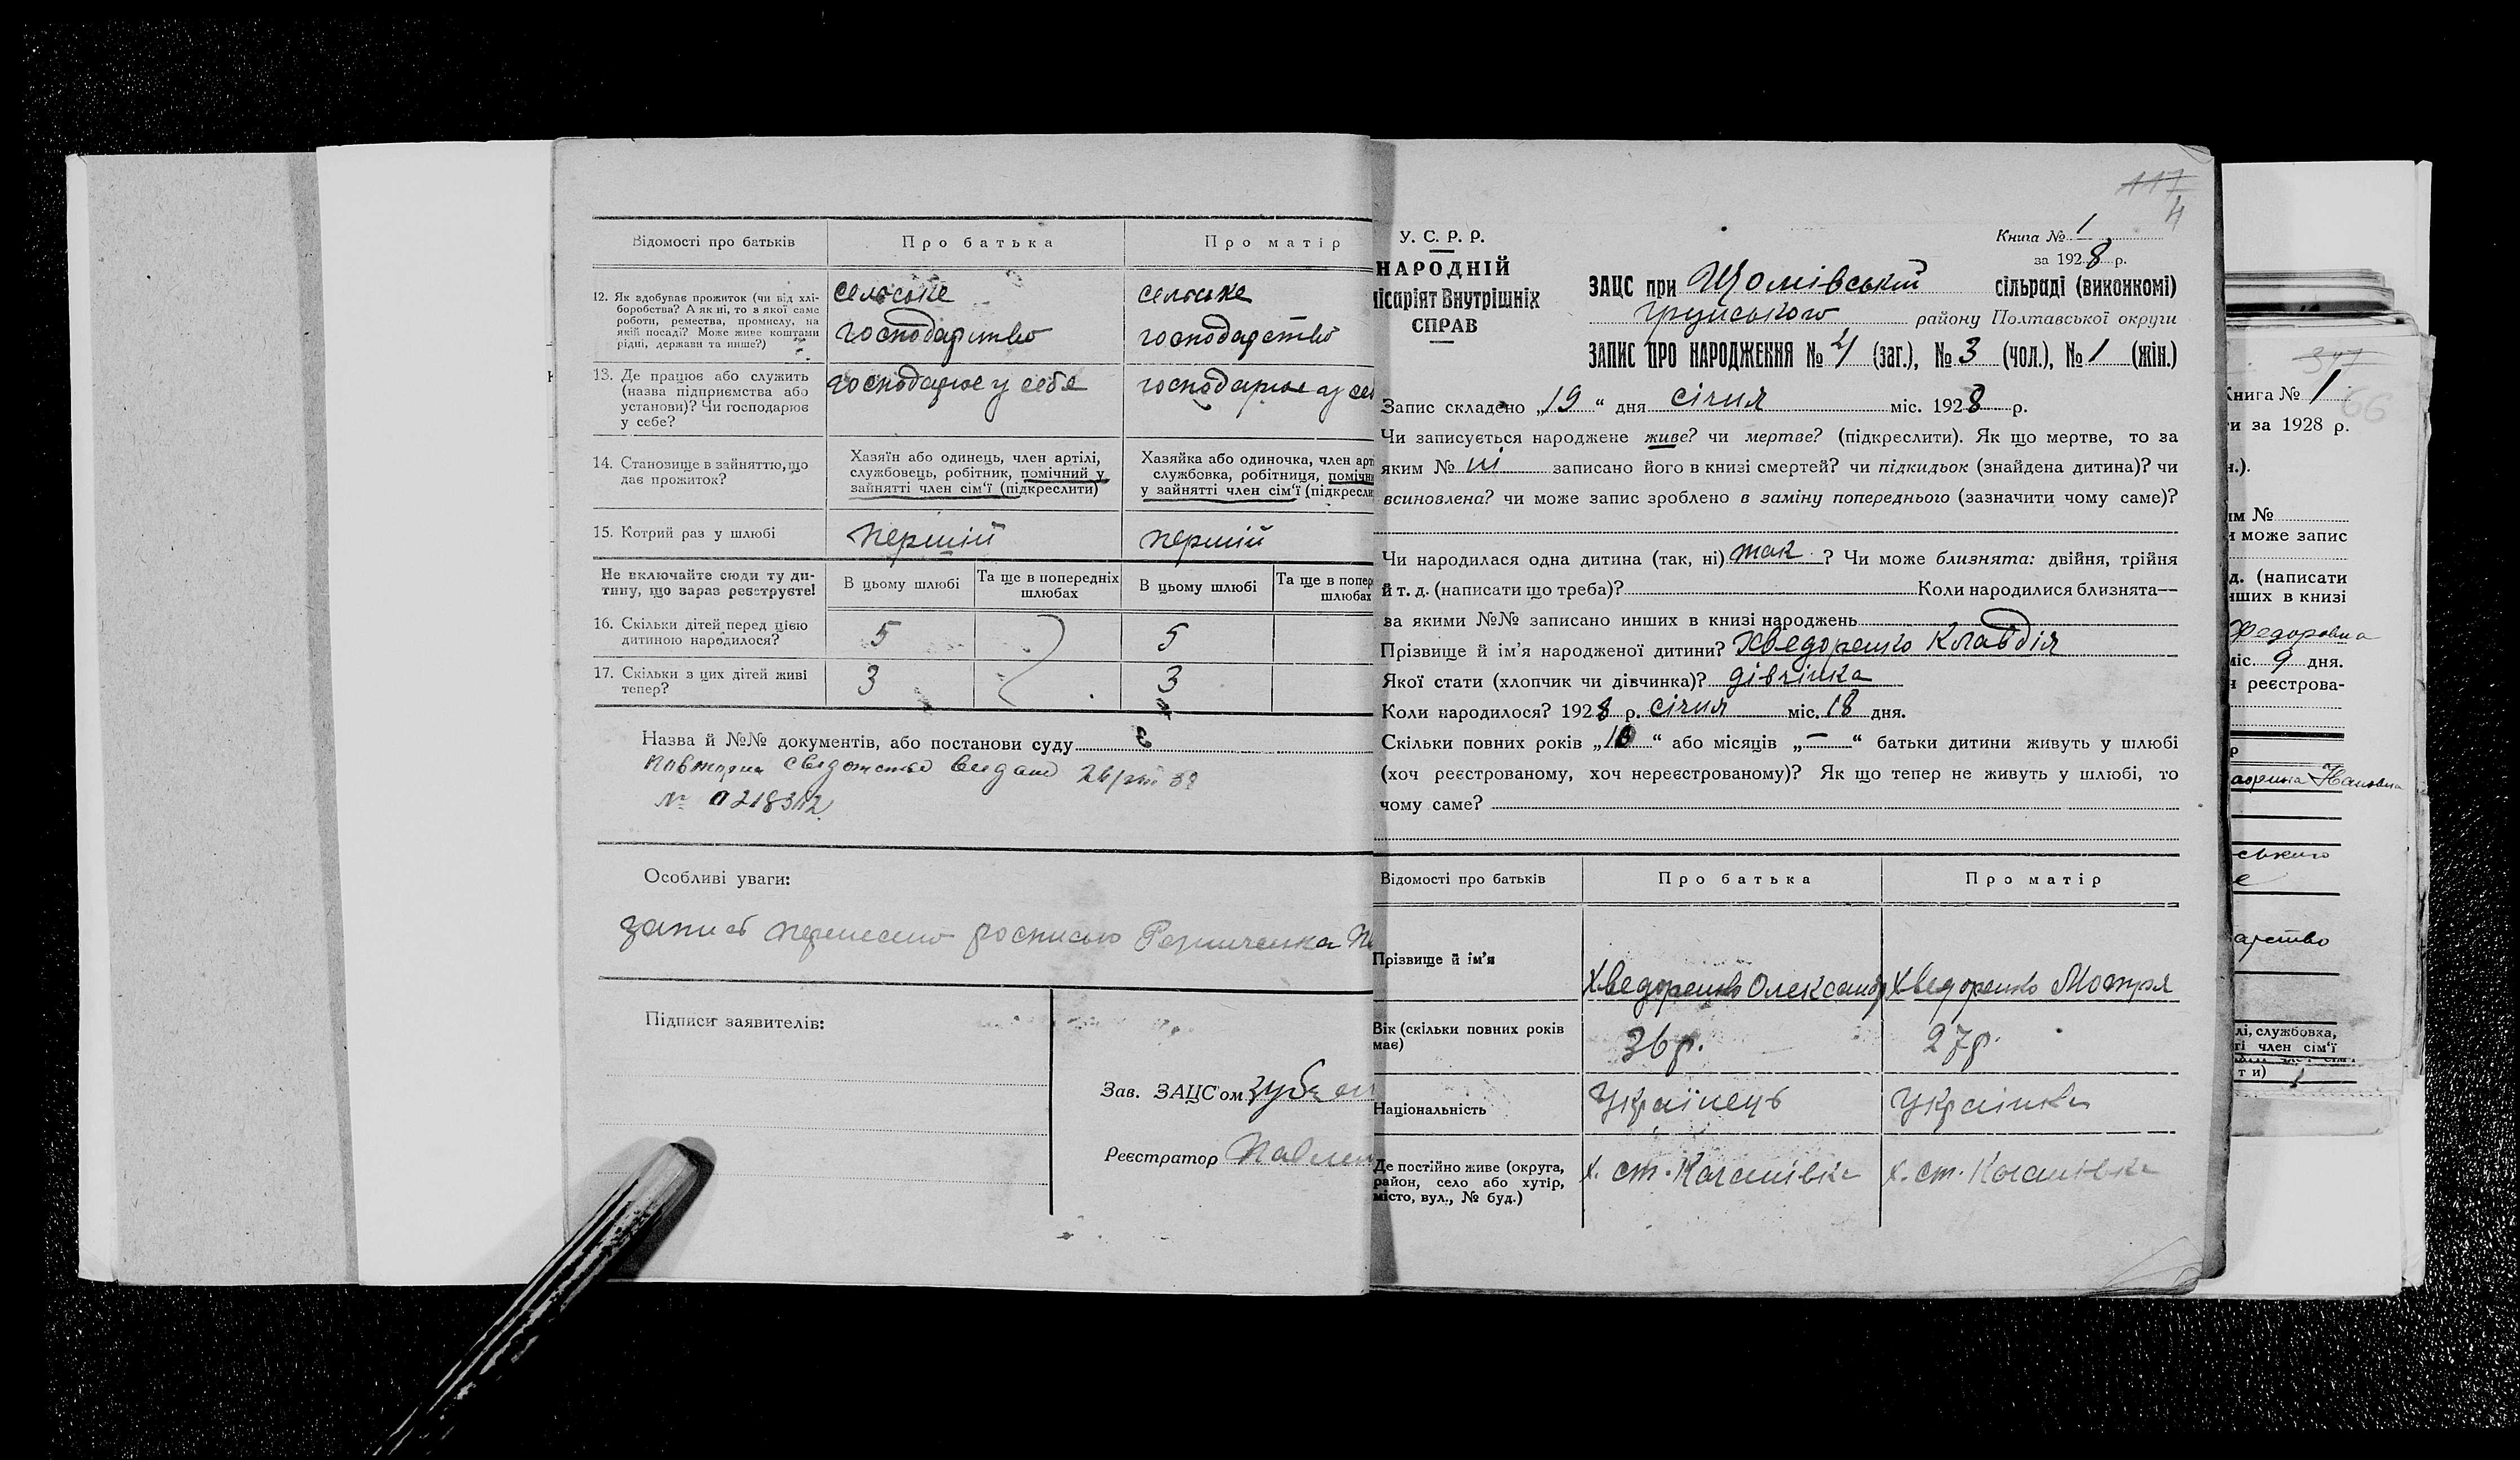 Відомості про батьків
Про батька
Про матір
12. Як здобуває прожиток (чи від хлі-
боробства? А як ні, то з якої саме
роботи, ремества, промислу, на
якій посаді? Може живе коштами
рідні, держави та инше?)
сельське
господарство
сельське
господарство
13. Де працює або служить
(назва підприємства або
установи)? Чи господарює
у себе?
господарює у себе
господарює у се
14. Становище в зайняттю, що
дає прожиток?
Хазяїн або одинець, член артілі,
службовець, робітник, помічний у
зайнятті член сім'ї (підкреслити)
Хазяйка або одиночка, член арт
службовка, робітниця, помічн
у зайнятті член сім'ї (підкресли
15. Котрий раз у шлюбі
первий
первий
Не включайте сюди ту ди-
тину, що зараз реєструєте!
В цьому шлюбі
Та ще в попередніх
шлюбах
В цьому шлюбі
Та ще в попер
шлюбах
16. Скільки дітей перед цією
дитиною народилося?
5
5
17. Скільки з цих дітей живі
тепер?
3
3
Назва й №№ документів, або постанови суду
видано
№ 0218312
Особливі уваги:
запись перенесено росписью
Підписи заявителів:
Зав. ЗАЦС'ом
Реєстратор
117
4
У. С. Р. Р.
НАРОДНІЙ
ісаріят Внутрішніх
СПРАВ
Книга № 1
за 1928 р.
ЗАЦС при Щомівській сільраді (виконкомі)
Грунського району Полтавської округи
ЗАПИС ПРО НАРОДЖЕННЯ № 4 (заг.), № 3 (чол.), № 1 (жін.)
Запис складено „19“ дня січня міс. 1928 р.
Чи записується народжене живе? чи мертве? (підкреслити). Як що мертве, то за
яким № ні записано його в книзі смертей? чи підкидьок (знайдена дитина)? чи
всиновлена? чи може запис зроблено в заміну попереднього (зазначити чому саме)?
Чи народилася одна дитина (так, ні) так ? Чи може близнята: двійня, трійня
й т. д. (написати що треба)? Коли народилися близнята—
за якими №№ записано инших в книзі народжень
Прізвище й ім'я народженої дитини? Хведоренко Клавдія
Якої стати (хлопчик чи дівчинка)? дівчінка
Коли народилось? 1928 р. січня міс. 18 дня.
Скільки повних років „10“ або місяців „—“ батьки дитини живуть у шлюбі
(хоч реєстрованому, хоч нереєстрованому)? Як що тепер не живуть у шлюбі, то
чому саме?
Відомості про батьків
Про батька
Про матір
Прізвище й ім'я
Хведоренко Олександр
Хведоренко Мотря
Вік (скільки повних років
має)
36 р.
27 р.
Національність
Українець
Українка
Де постійно живе (округа,
район, село або хутір,
місто, вул., № буд.)
х. ст. Качанівка
х. ст. Качанівка
347
66
Книга № 1
и за 1928 р.
н.).
им №
и може запис
д. (написати
нших в книзі
Федоровна
міс. 9 дня.
я реєстрова-
ського
е
арство
лі, службовка,
ті член сім'ї
т и)